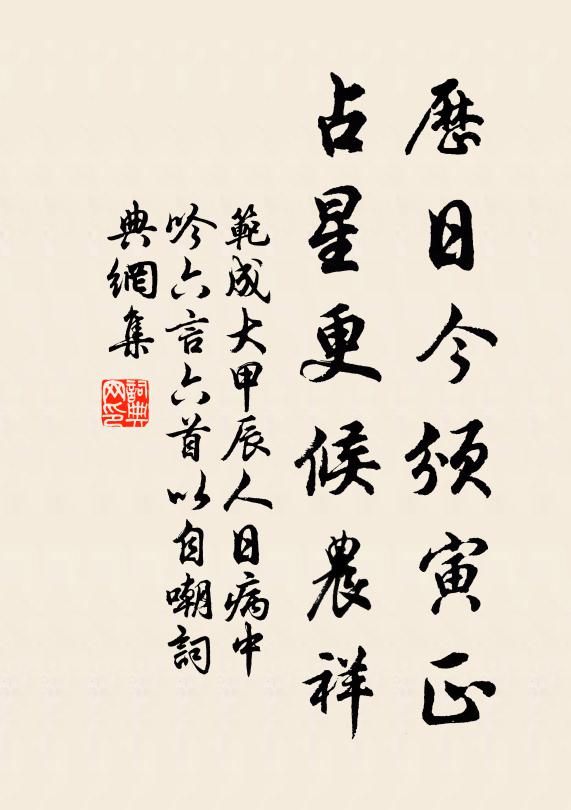 歷日今頒寅正
占星更候農祥
範成大甲辰人日病中
吟六言六首以自嘲詞
典網集
詞典網印